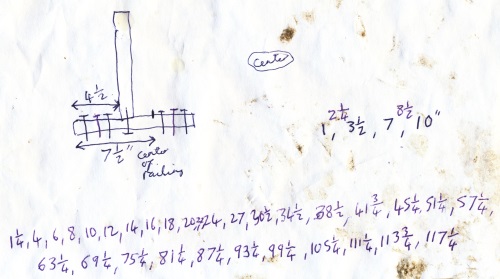 4½
center
2¼ 8½
1, 3½, 7, 10"
7½"
center
of
railing
1¼, 4, 6, 8, 10, 12, 14, 16, 18, 20, 24, 27, 30½, 34½, 38½, 41¾, 45¼, 51¼, 57¼,
63¼, 69¼, 75¼, 81¼, 87¼, 93¼, 99¼, 105¼, 111¼, 113¾, 117¼